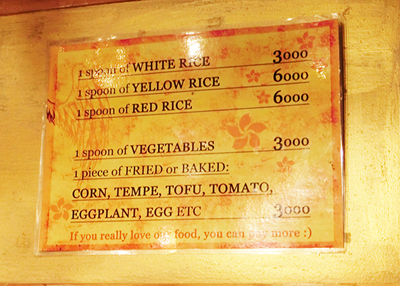 1 spoon of WHITE RICE 3000
1 spoon of YELLOW RICE 6000
1 spoon of RED RICE 6000
1 spoon of VEGETABLES 3000
1 piece of FRIED or BAKED:
CORN, TEMPE, TOFU, TOMATO,
EGGPLANT, EGG ETC 3000
If you really love our food, you can pay more :)